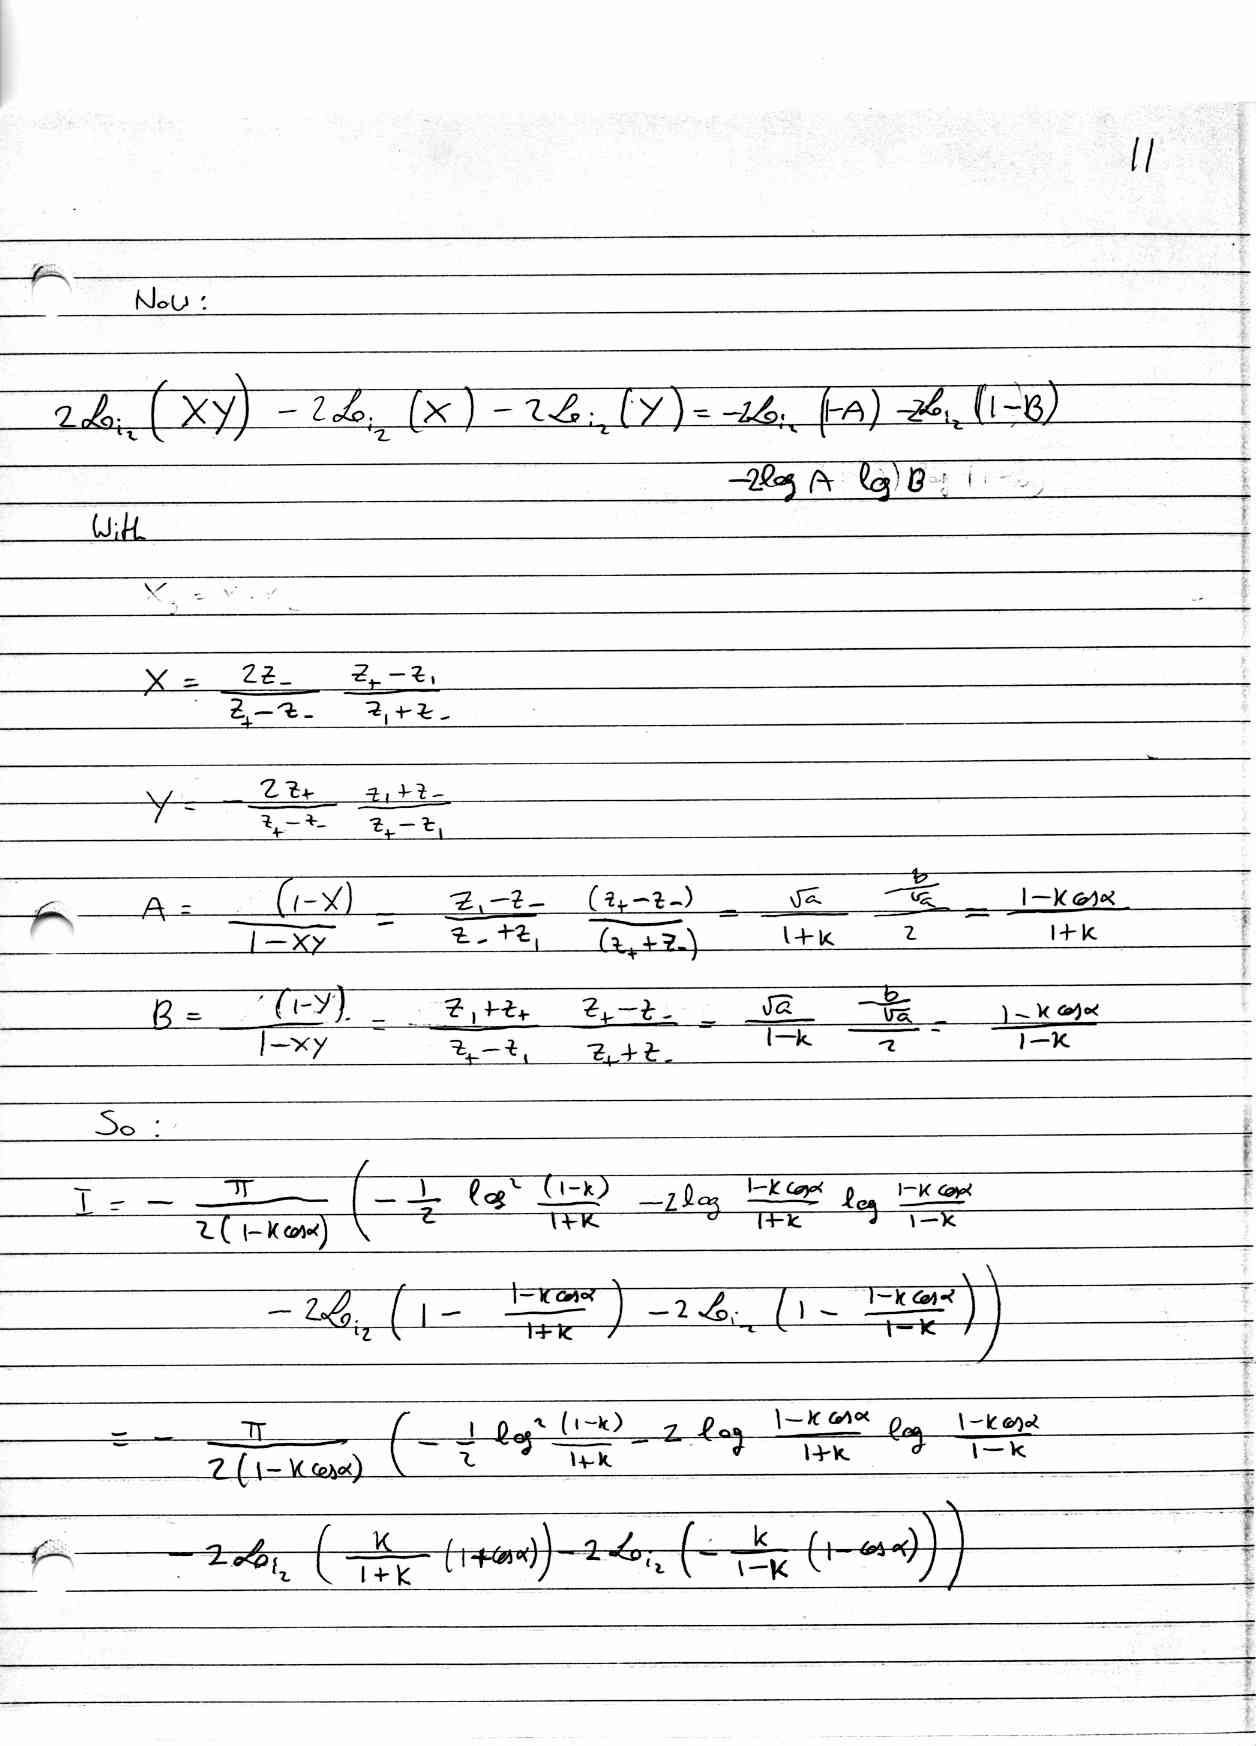 11
Now:
2Li₂(XY) − 2Li₂(X) − 2Li₂(Y) = −2Li₂(1−A) −2Li₂(1−B)
−2log A log B
With
X = \frac{2z_-}{z_+ − z_-} \frac{z_+ − z_1}{z_1 + z_-}
Y = − \frac{2z_+}{z_+ − z_-} \frac{z_1 + z_-}{z_+ − z_1}
A = \frac{(1−X)}{1−XY} = \frac{z_1 − z_-}{z_- + z_1} \frac{(z_+ − z_-)}{(z_+ + z_-)} = \frac{√a}{1+k} \frac{\frac{b}{√a}}{2} = \frac{1−k cosα}{1+k}
B = \frac{(1−Y)}{1−XY} = \frac{z_1 + z_+}{z_+ − z_1} \frac{z_+ − z_-}{z_+ + z_-} = \frac{√a}{1−k} \frac{\frac{b}{√a}}{2} = \frac{1−k cosα}{1−k}
So:
I = − \frac{π}{2(1−k cosα)} ( − \frac{1}{2} log² \frac{(1−k)}{1+k} − 2log \frac{1−k cosα}{1+k} log \frac{1−k cosα}{1−k}
− 2Li₂ ( 1 − \frac{1−k cosα}{1+k} ) − 2Li₂ ( 1 − \frac{1−k cosα}{1−k} ) )
= − \frac{π}{2(1−k cosα)} ( − \frac{1}{2} log² \frac{(1−k)}{1+k} − 2 log \frac{1−k cosα}{1+k} log \frac{1−k cosα}{1−k}
− 2Li₂ ( \frac{k}{1+k} (1+cosα) ) − 2Li₂ ( − \frac{k}{1−k} (1−cosα) ) )